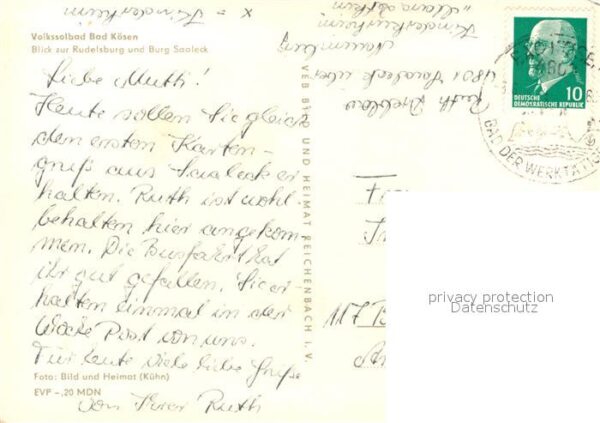 Volkssolbad Bad Kösen
Blick zur Rudelsburg und Burg Saaleck
Liebe Mutti!
Heute sollen Sie gleich
den ersten Karten-
gruß aus Saaleck er
halten. Ruth ist wohl-
behalten hier angekom-
men. Die Busfahrt hat
ihr gut gefallen. Sie er-
halten einmal in der
Woche Post von uns.
Für heute viele liebe Grüße
von Ihrer Ruth
Foto: Bild und Heimat (Kühn)
EVP -,20 MDN
VEB BILD UND HEIMAT REICHENBACH I. V.
x = Kinderheim
Kinderkurheim
Naumburg
4801 Saaleck über
Ruth
10
DEUTSCHE
DEMOKRATISCHE REPUBLIK
BAD DER WERKTÄTIGEN
117 B
privacy protection
Datenschutz